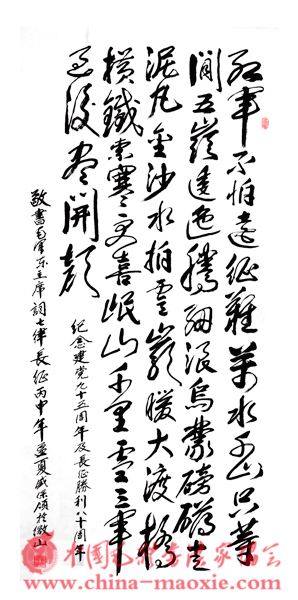 红軍不怕遠征難萬水千山只等
閒五嶺逶迤騰細浪烏蒙磅礴走
泥丸金沙水拍雲巖暖大渡橋
橫鐵索寒更喜岷山千里雪三軍
過後盡開顏
紀念建党九十五周年及長征勝利八十周年
敬書毛澤東主席詞七律長征丙申年孟夏於微山
www.china-maoxie.com